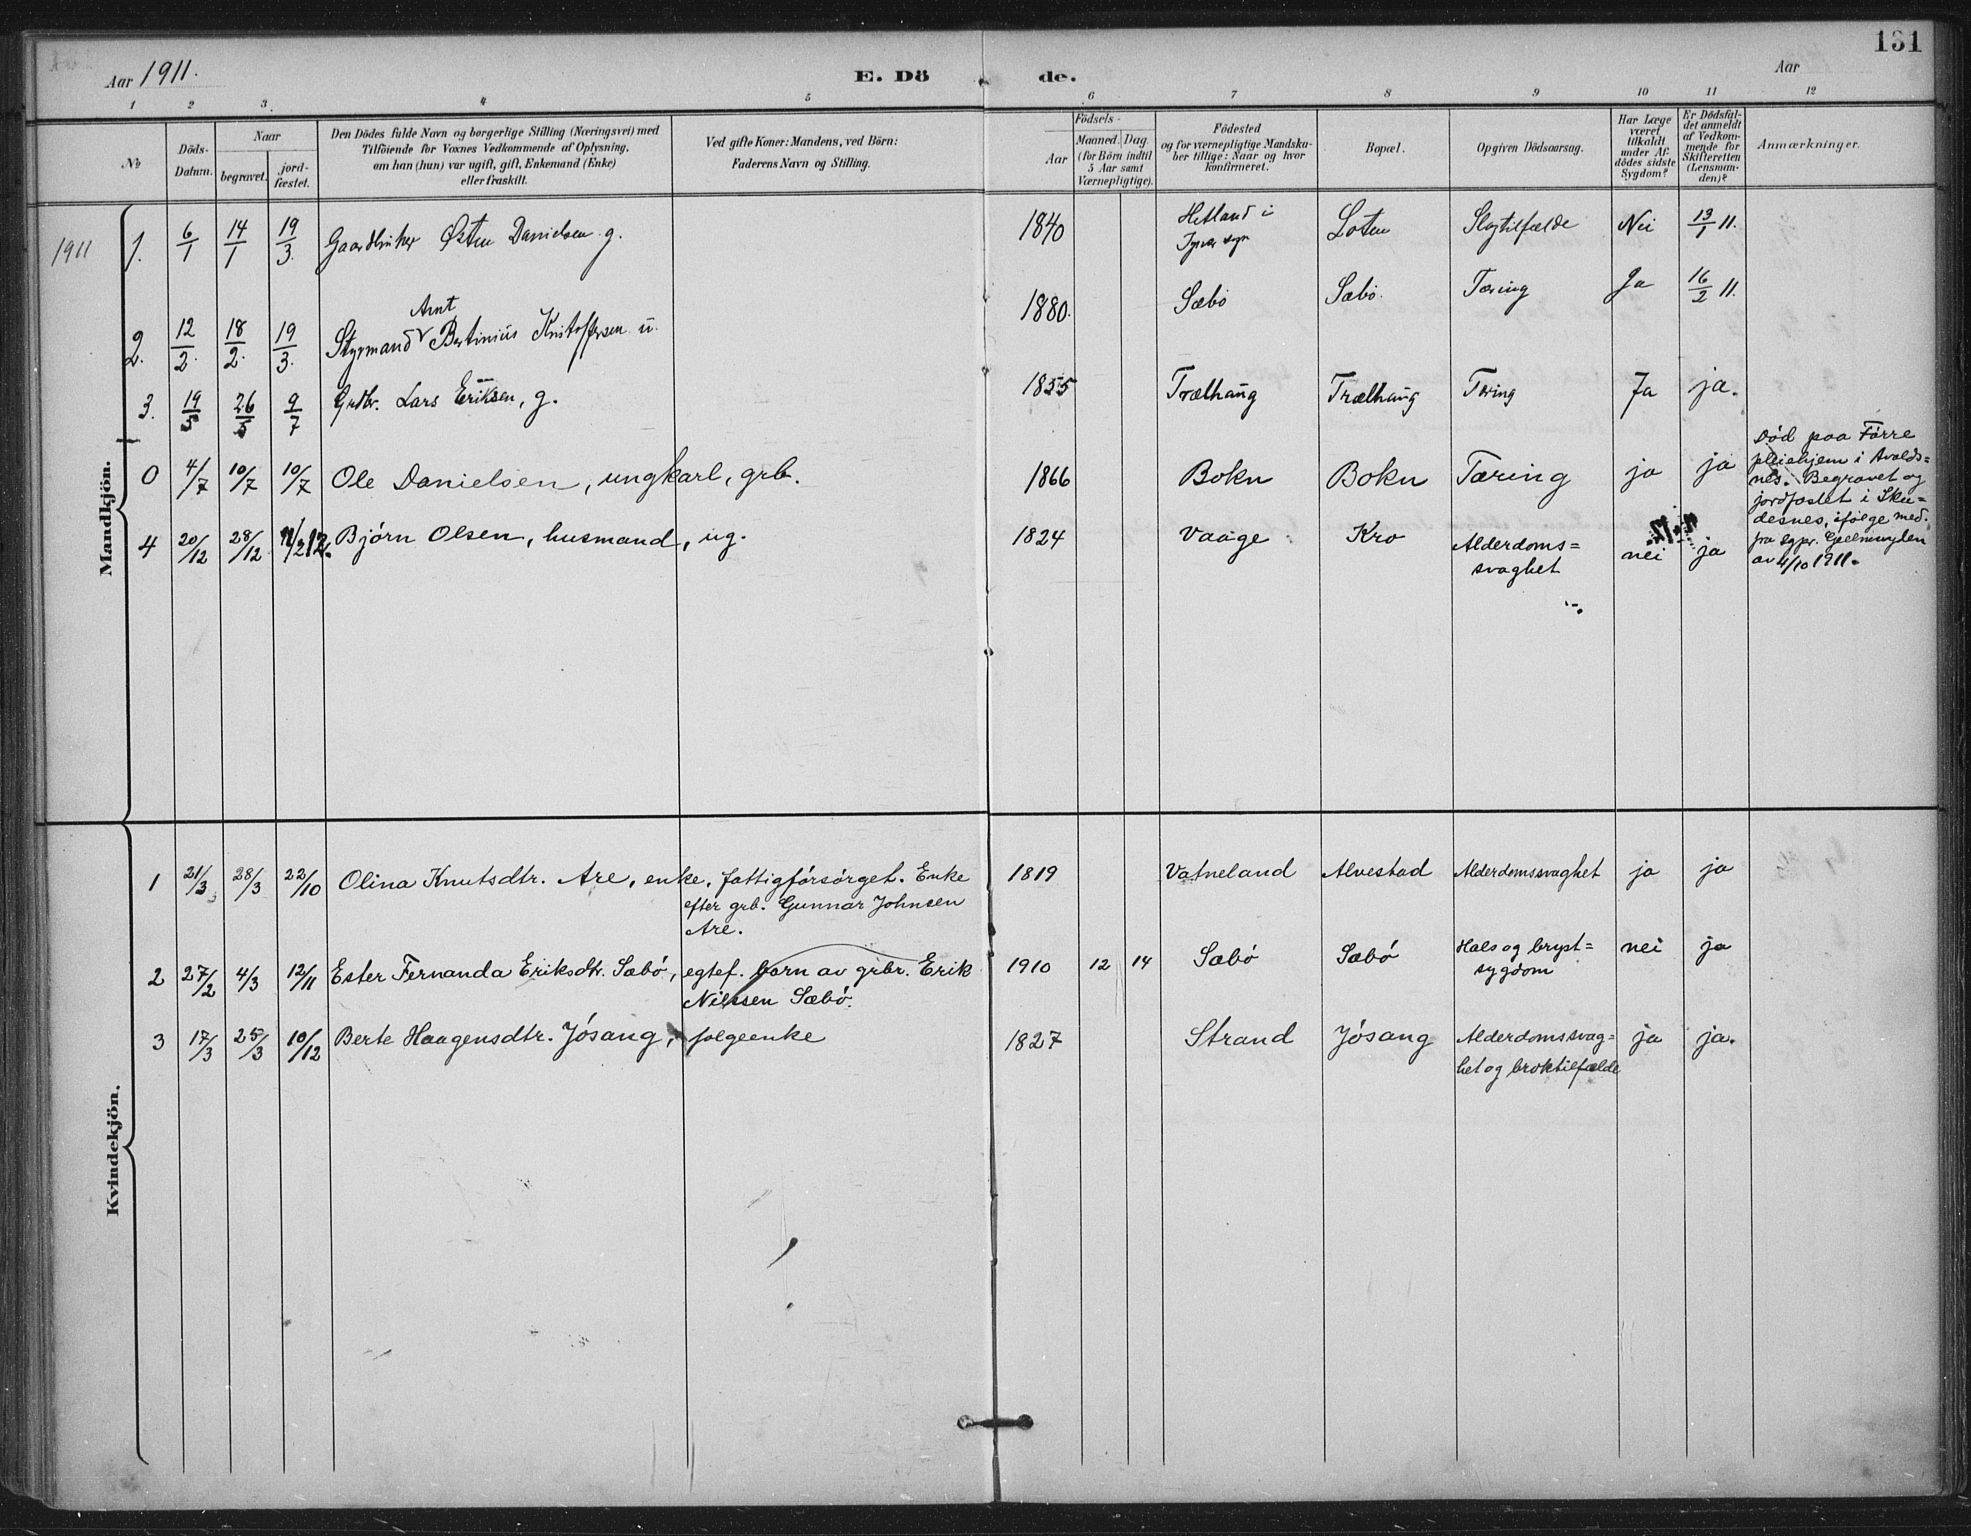 131
Aar 1911.
E. Dö de.
Aar
1 2 3. 4 5 6 7 8 9 10 11 12
No
Döds-Datum.
Naar
begravet.
jord-fæstet.
Den Dödes fulde Navn og borgerlige Stilling (Næringsvei) med
Tilföiende for Voxnes Vedkommende af Oplysning,
om han (hun) var ugift, gift, Enkemand (Enke)
eller fraskilt.
Ved gifte Koner: Mandens, ved Börn:
Faderens Navn og Stilling.
Födsels-
Aar
Maaned. Dag
(for Börn indtil
5 Aar samt
Værnepligtige).
Födested
og for værnepligtige Mandska-
ber tillige: Naar og hvor
konfirmeret.
Bopæl.
Opgiven Dödsaarsag.
Har Læge
været
tilkaldt
under Af-
dödes sidste
Sygdom?
Er Dödsfal-
det anmeldt
af Vedkom-
mende for
Skifteretten
(Lensman-
den)?
Anmærkninger.
Mandkjön.
1911 1. 6/1 14/1 19/3. Gaardbruker Østen Danielsen g. 1840 Hetland i Loten Slagtilfælde Nei 13/1 11.
Tysvær sogn
Arnt
2. 12/2. 18/2. 19/3. Styrmand Bertinius Kristoffersen u. 1880. Sæbø Sæbø. Tæring Ja 16/2 11.
3. 19/5 26/5 9/7 Grdbr. Lars Eriksen, g. 1855 Trælhaug Trælhaug Tæring Ja ja.
0 4/7 10/7 10/7 Ole Danielsen, ungkarl, grb. 1866 Bokn Bokn Tæring ja ja
Død paa Førre
pleiehjem i Avalds=
nes. Begravet og
jordfæstet i Sku=
desnes, ifølge med.
fra sgpr. Geelmuyden
av 4/10 1911.
4 20/12 28/12 11/2 12. Bjørn Olsen, husmand, ug. 1824 Vaage Kro Alderdoms= nei ja
svaghet
Kvindekjön.
1 21/3 28/3 22/10 Olina Knutsdtr. Are, enke, fattigforsørget. Enke 1819 Vatneland Alvestad Alderdomssvaghet ja ja
efter grb. Gunnar Johnsen
Are.
2 27/2 4/3 12/11 Ester Fernanda Eriksdtr. Sæbø, egtef. barn av grbr. Erik 1910 12 14 Sæbø Sæbø Hals og bryst= nei ja
Nilssen Sæbø. sygdom
3 17/3 25/3 10/12 Berte Haagensdtr. Jøsang, folgeenke 1827 Strand Jøsang Alderdomssvag= ja ja.
het og broktilfælde